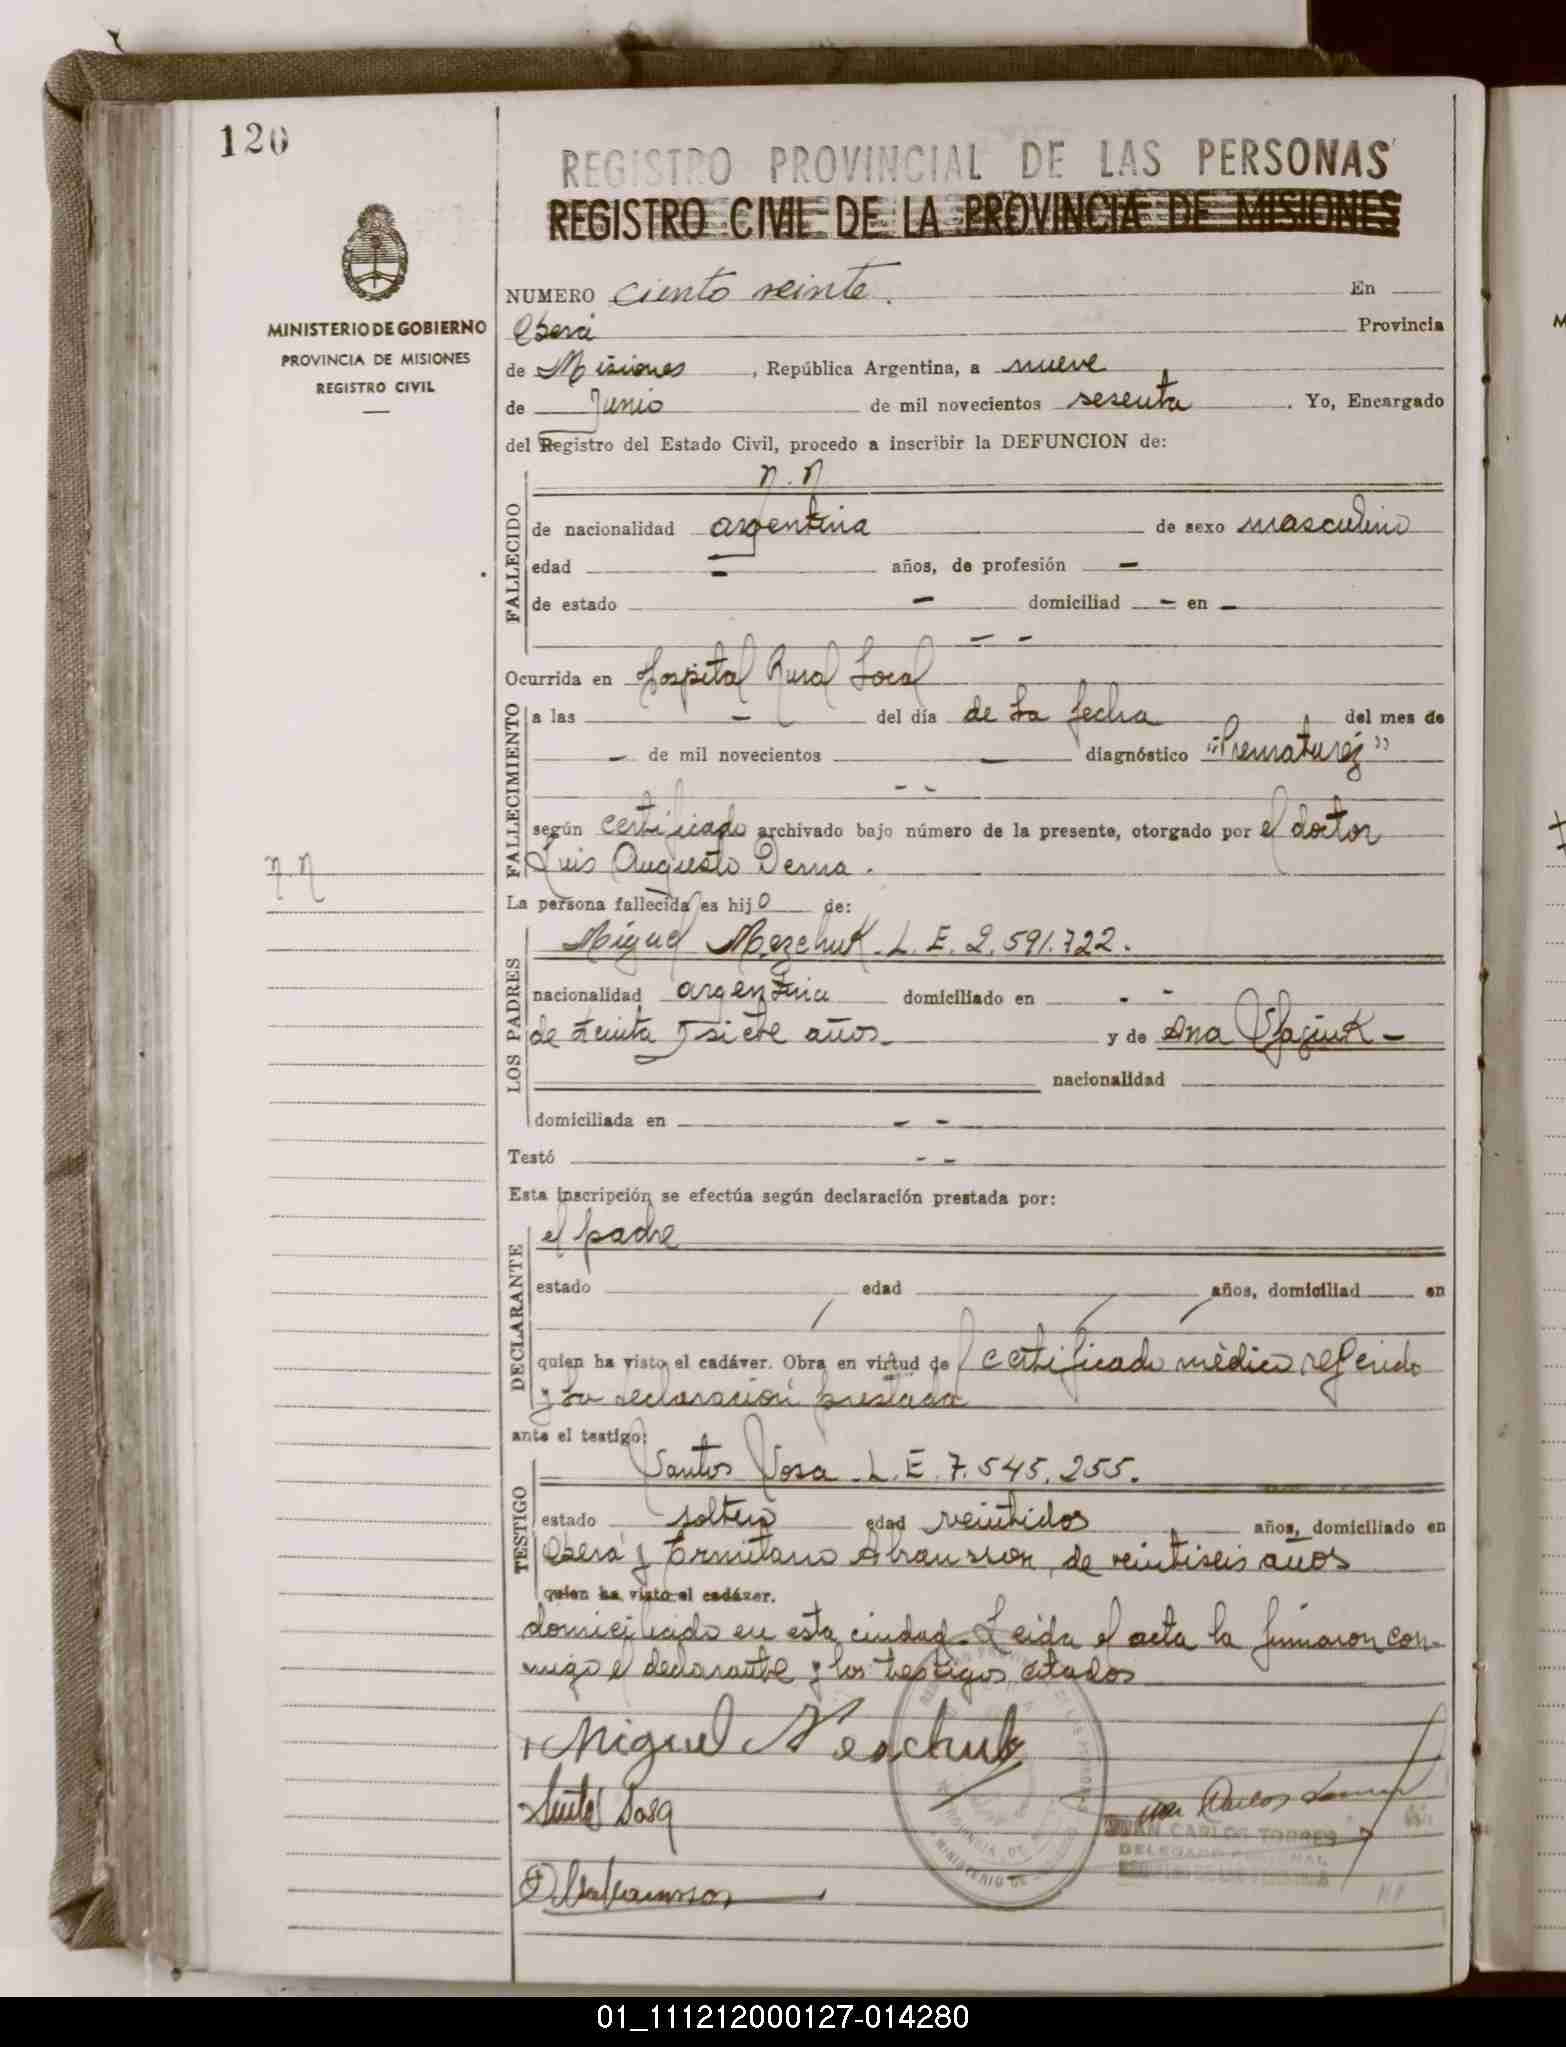 120
REGISTRO PROVINCIAL DE LAS PERSONAS
REGISTRO CIVIL DE LA PROVINCIA DE MISIONES
MINISTERIO DE GOBIERNO
PROVINCIA DE MISIONES
REGISTRO CIVIL
NUMERO ciento veinte. En
Oberá Provincia
de Misiones, República Argentina, a nueve
de Junio de mil novecientos sesenta. Yo, Encargado
del Registro del Estado Civil, procedo a inscribir la DEFUNCION de:
n.n
FALLECIDO
de nacionalidad argentina de sexo masculino
edad - años, de profesión -
de estado - domiciliad - en -
- -
Ocurrida en Hospital Rural Local
FALLECIMIENTO
a las - del día de la fecha del mes de
- de mil novecientos - diagnóstico "Prematurez"
- -
según certificado archivado bajo número de la presente, otorgado por el doctor
Luis Augusto Derna.
n.n
La persona fallecida es hijo de:
LOS PADRES
Miguel Mezchuk L.E. 2.591.722.
nacionalidad argentina domiciliado en - -
de treinta y siete años - y de Ana -
nacionalidad
domiciliada en - -
Testó - -
Esta inscripción se efectúa según declaración prestada por:
DECLARANTE
el padre
estado edad años, domiciliad en
quien ha visto el cadáver. Obra en virtud de certificado médico referido
y la declaración prestada
ante el testigo:
TESTIGO
Santos Sosa - L.E 7.545.255.
estado soltero edad veintidos años, domiciliado en
Oberá y Abransson, de veintiseis años
quien ha visto el cadáver.
domiciliado en esta ciudad. Leida el acta la firmaron con-
migo el declarante y los testigos citados
Miguel
Sosa
JUAN CARLOS TORRES
01_111212000127-014280